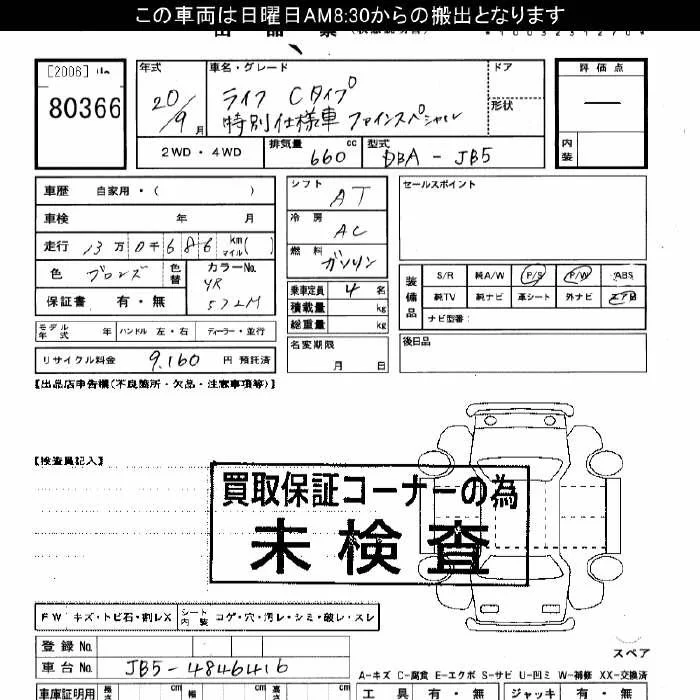 この車両は日曜日AM8:30からの搬出となります
[2006]
80366
年式 車名・グレード ドア 評価点
20/9月 ライフ Cタイプ
特別仕様車 ファインスペシャル 形状
2WD・4WD 排気量 660 cc 型式 DBA-JB5 内装
車歴 自家用・( ) シフト AT セールスポイント
車検 年 月 冷房 AC
走行 13万0千686 km マイル( ) 燃料 ガソリン
色 ブロンズ 色替 カラーNo. YR 572M 装備品 S/R 純A/W P/S P/W ABS
保証書 有・無 乗車定員 4名 純TV 純ナビ 革シート 外ナビ エアB
積載量 kg ナビ型番:
モデル年式 年 ハンドル 左・右 ディーラー・並行 総重量 kg
リサイクル料金 9,160 円 預託済 名変期限 月 日 後日品
【出品店申告欄(不良箇所・欠品・注意事項等)】
【検査員記入】
買取保証コーナーの為
未検査
FW キズ・トビ石・割レX シート内装 コゲ・穴・汚レ・シミ・破レ・スレ
登録No. スペア
車台No. JB5-4846416
A-キズ C-腐食 E-エクボ S-サビ U-凹ミ W-補修 XX-交換済
車庫証明用 長さ cm 幅 cm cm 工具 有・無 ジャッキ 有・無